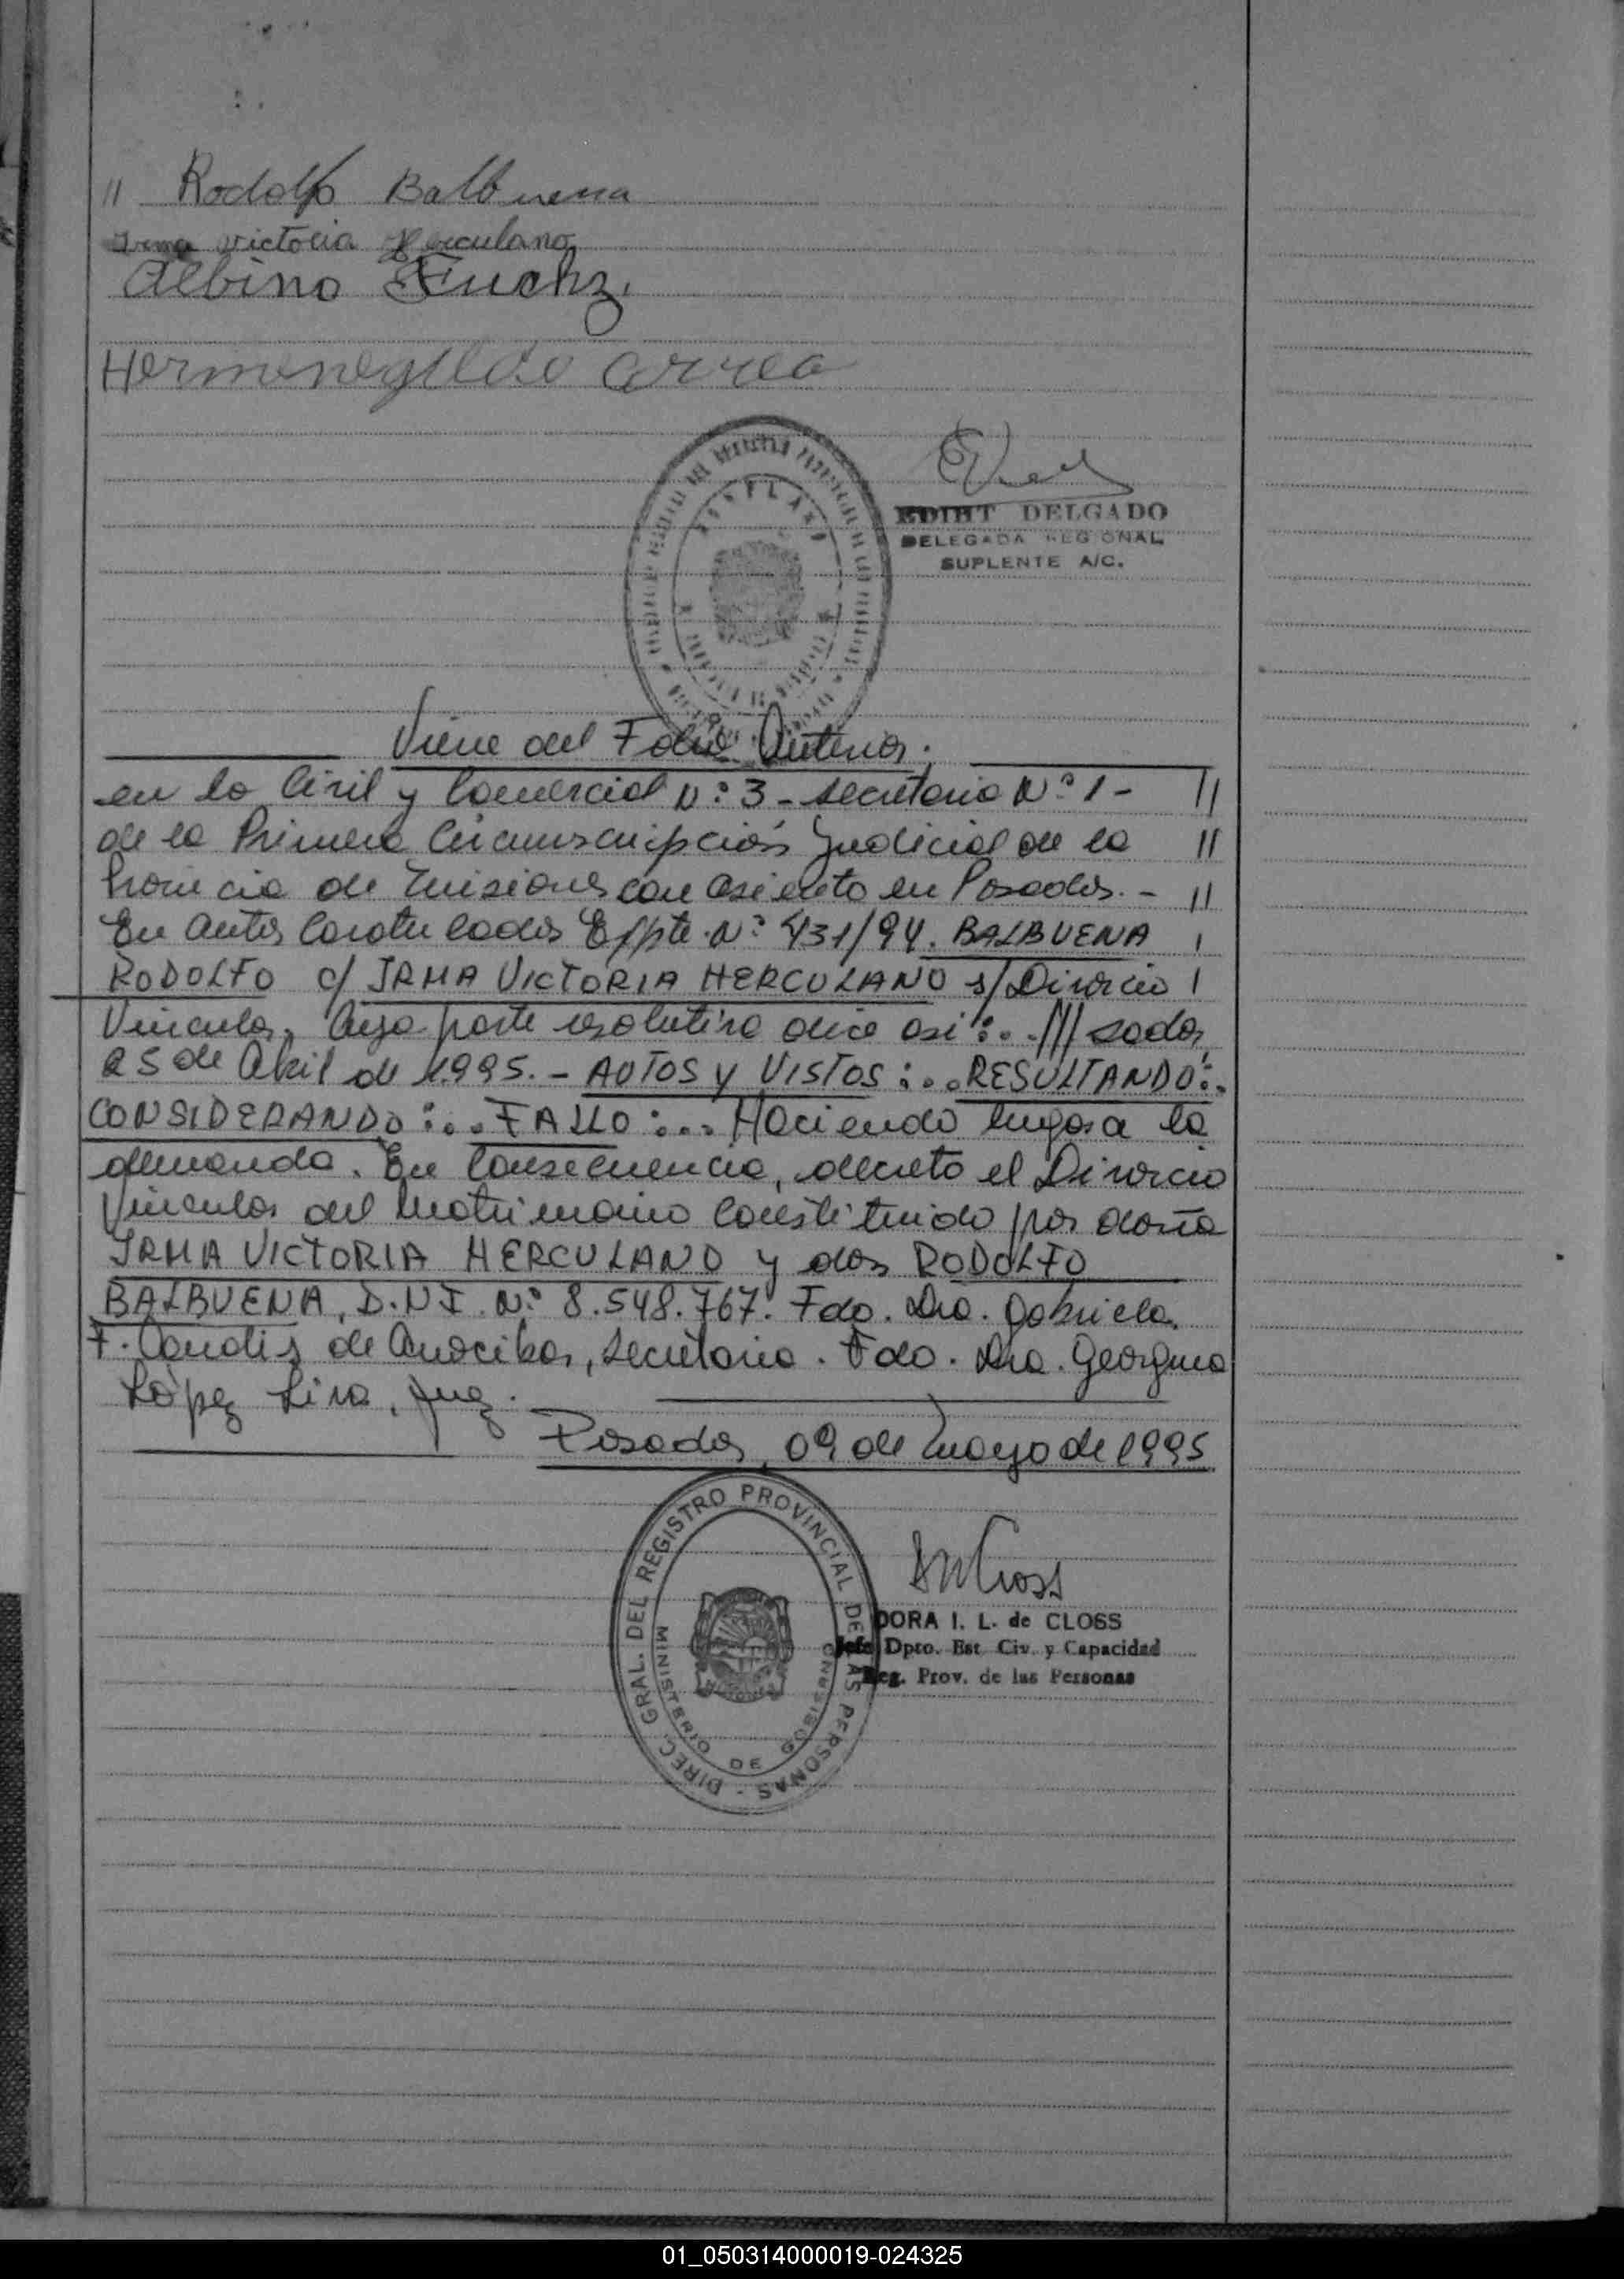 11 Rodolfo Balbuena
Irma Victoria Herculano
Albino Fuchz.
Hermenegildo Correa
EDIHT DELGADO
DELEGADA REGIONAL
SUPLENTE A/C.
Viene del Folio Anterior.
en lo Civil y Comercial N:º 3 - Secretaria Nº 1 - //
de la Primera Circunscripción Judicial de la //
Provincia de Misiones con asiento en Posadas. - //
En autos Caratulados Expte. Nº 431/94. BALBUENA
RODOLFO c/ IRMA VICTORIA HERCULANO s/ Divorcio
Vincular, Cuya parte resolutiva dice asi:.. /// sadas,
25 de Abril de 1.995. - AUTOS y VISTOS:.. RESULTANDO:.
CONSIDERANDO:... FALLO:... Haciendo lugar a la
demanda. En Consecuencia, decreto el Divorcio
Vincular del Matrimonio Constituido por doña
IRMA VICTORIA HERCULANO y don RODOLFO
BALBUENA, D.N.I. Nº 8.548.767. Fdo. Dra. Gabriela
F. Canalis de Amocibar, Secretaria. Fdo. Dra. Georgina
López Lira, Juez.
Posadas, 09 de Mayo de 1995
DIREC. GRAL. DEL REGISTRO PROVINCIAL DE LAS PERSONAS -
MINISTERIO DE GOBIERNO
DORA I. L. de CLOSS
Jefe Dpto. Est. Civ. y Capacidad
Reg. Prov. de las Personas
01_050314000019-024325